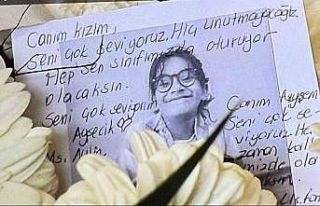 Canım Kızım,
Seni çok seviyoruz. Hiç unutmayacağız
Hep sen sınıfımızda oturuyor
olacaksın.
Seni çok seviyorum
Ayşecik
Ms.
Canım Ayşem
Seni çok se-
viyoruz. He
zaman kal
imizde ola